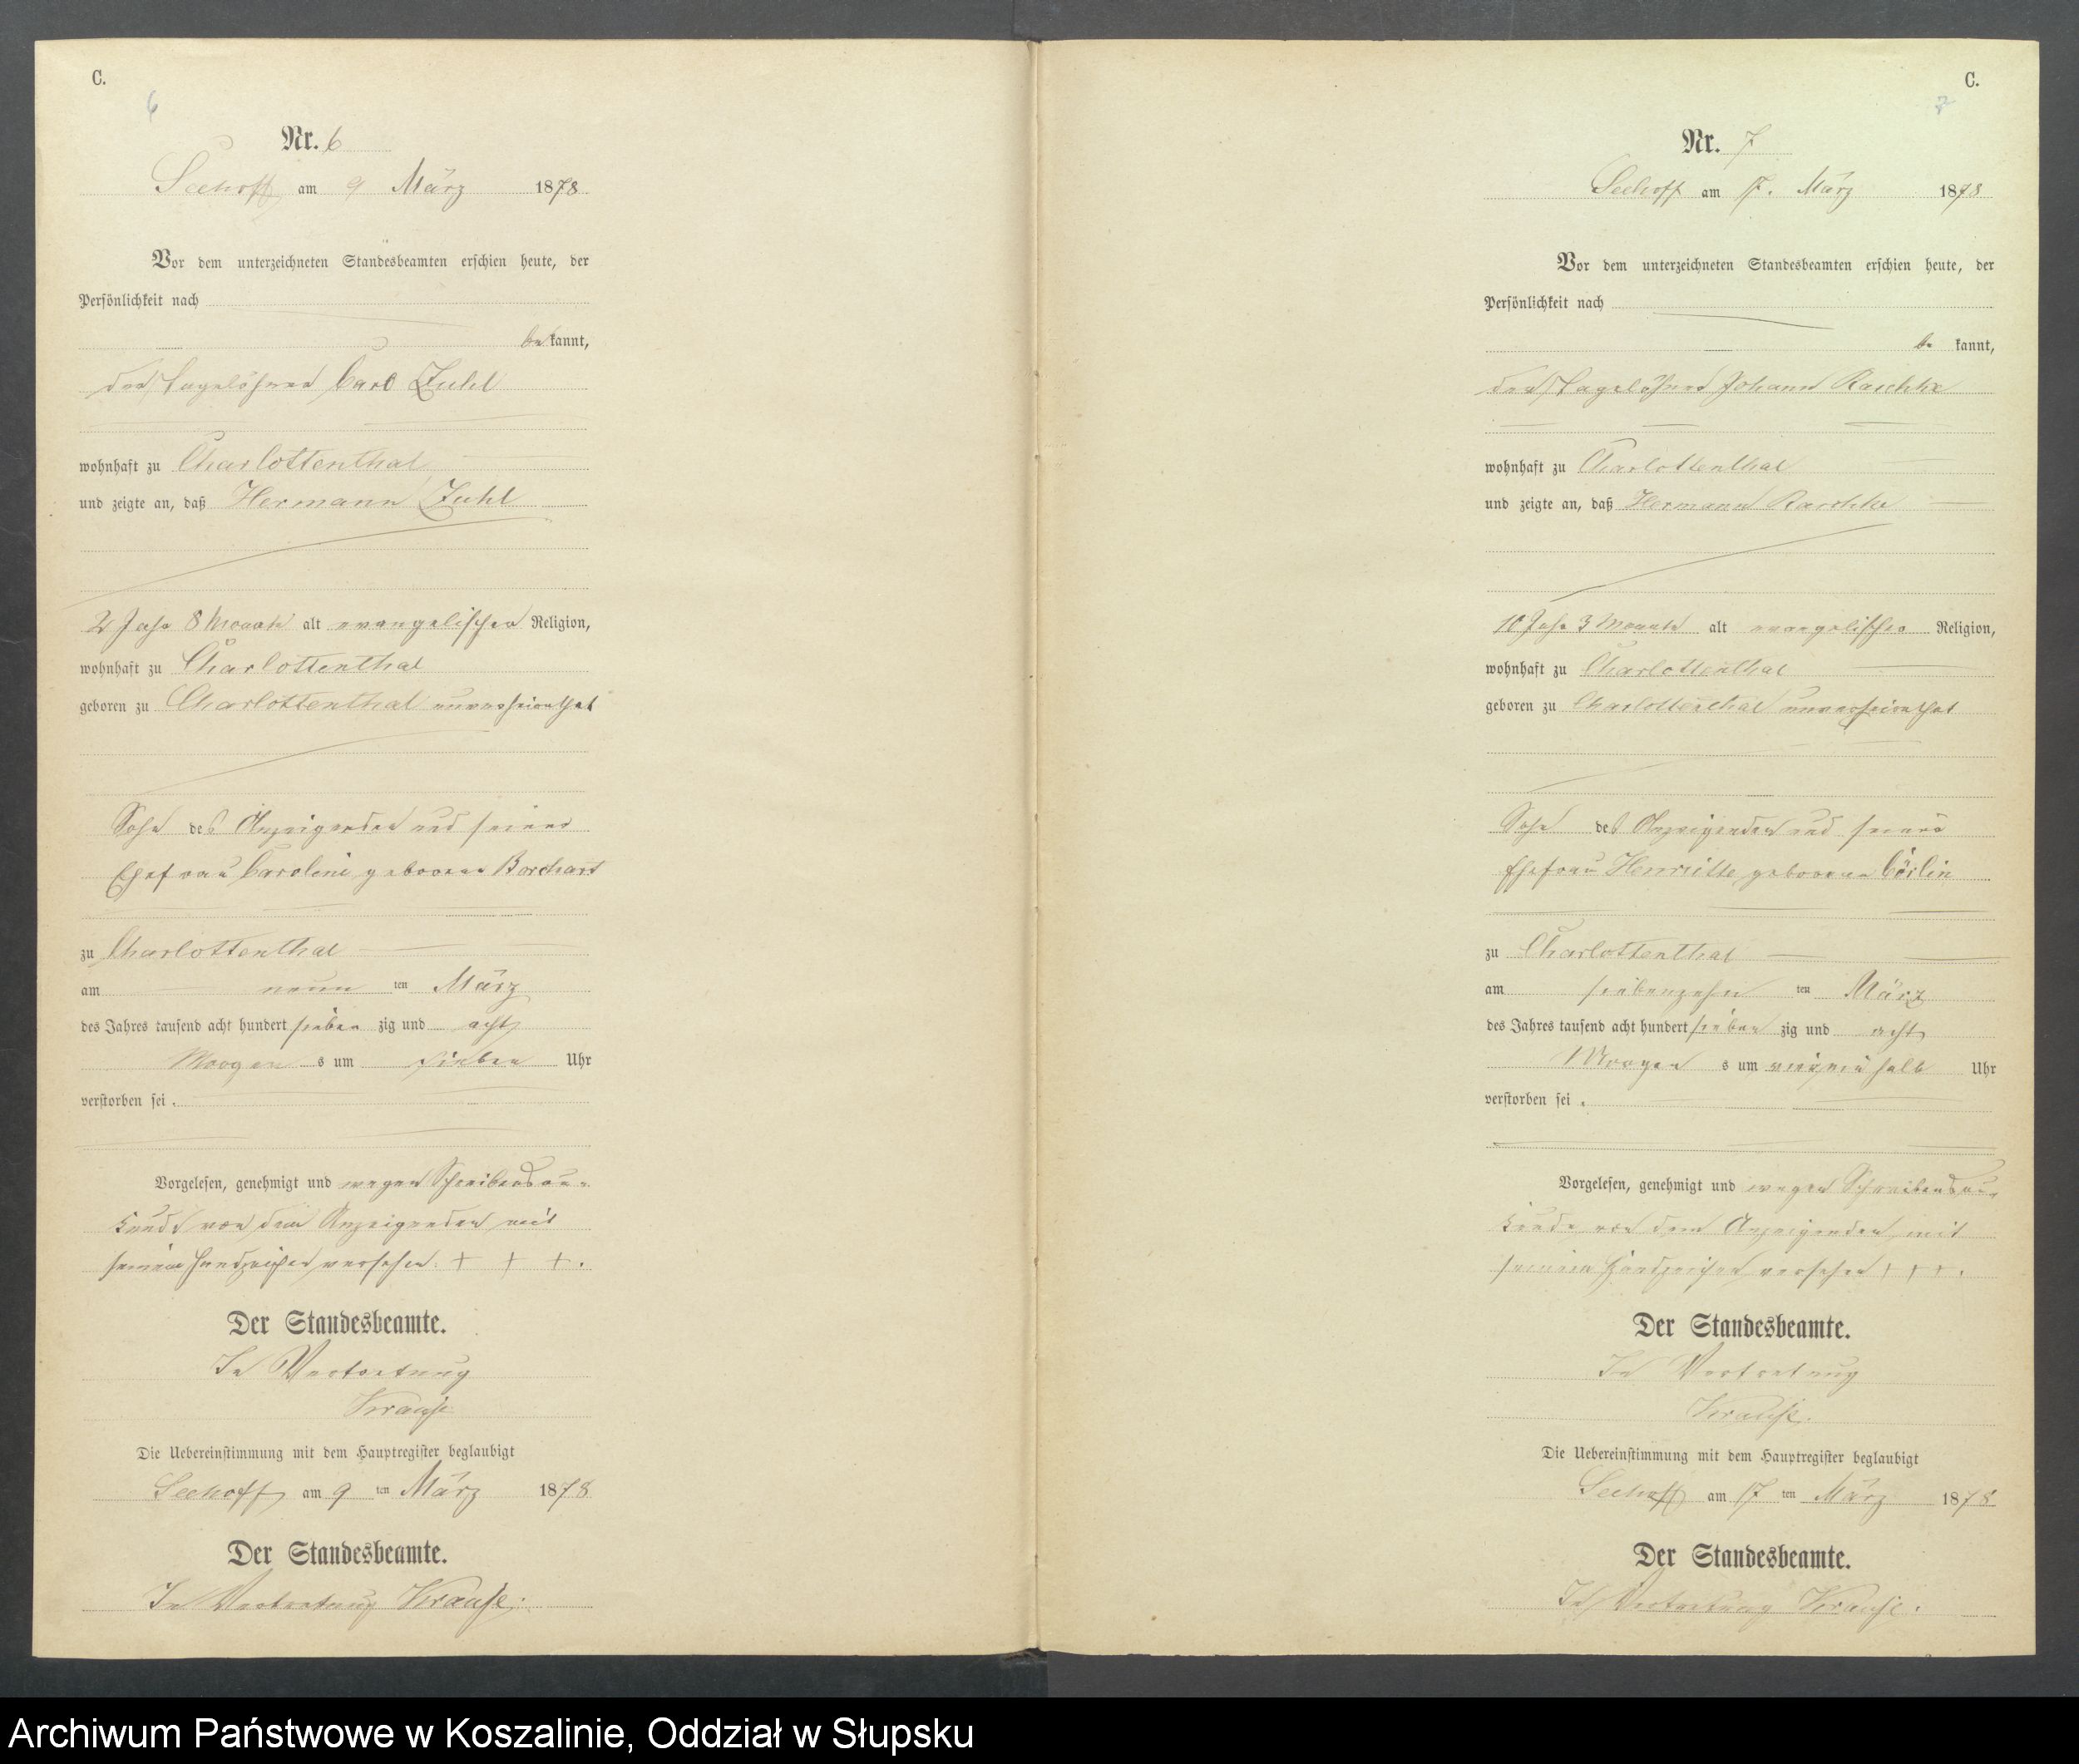 C.
6
Nr. 6
Seehoff am 9 März 1878
Vor dem unterzeichneten Standesbeamten erschien heute, der
Persönlichkeit nach
be kannt,
der Tagelöhner Carl Zuhl
wohnhaft zu Charlottenthal
und zeigte an, daß Hermann Zuhl
2 Jahr 8 Monate alt evangelischer Religion,
wohnhaft zu Charlottenthal
geboren zu Charlottenthal unverheirathet
Sohn des Anzeigenden und seiner
Ehefrau Caroline geborene Borchart
zu Charlottenthal
am neun ten März
des Jahres tausend acht hundert sieben zig und acht
Morgen s um sieben Uhr
verstorben sei.
Vorgelesen, genehmigt und wegen Schreibensun-
kunde von dem Anzeigenden mit
seinem Handzeichen versehen. + + +.
Der Standesbeamte.
In Vertretung
Krause
Die Uebereinstimmung mit dem Hauptregister beglaubigt
Seehoff am 9 ten März 1878
Der Standesbeamte.
In Vertretung Krause.
C.
7
Nr. 7
Seehoff am 17. März 1878
Vor dem unterzeichneten Standesbeamten erschien heute, der
Persönlichkeit nach
be kannt,
der Tagelöhner Johann Raschke
wohnhaft zu Charlottenthal
und zeigte an, daß Hermann Raschke
10 Jahr 3 Monate alt evangelischer Religion,
wohnhaft zu Charlottenthal
geboren zu Charlottenthal unverheirathet
Sohn des Anzeigenden und seiner
Ehefrau Henriette geborene Cörlin
zu Charlottenthal
am siebenzehn ten März
des Jahres tausend acht hundert sieben zig und acht
Morgen s um halb Uhr
verstorben sei.
Vorgelesen, genehmigt und wegen Schreibensun-
kunde von dem Anzeigenden mit
seinem Handzeichen versehen + + +.
Der Standesbeamte.
In Vertretung
Krause.
Die Uebereinstimmung mit dem Hauptregister beglaubigt
Seehoff am 17 ten März 1878
Der Standesbeamte.
In Vertretung Krause.
Archiwum Państwowe w Koszalinie, Oddział w Słupsku